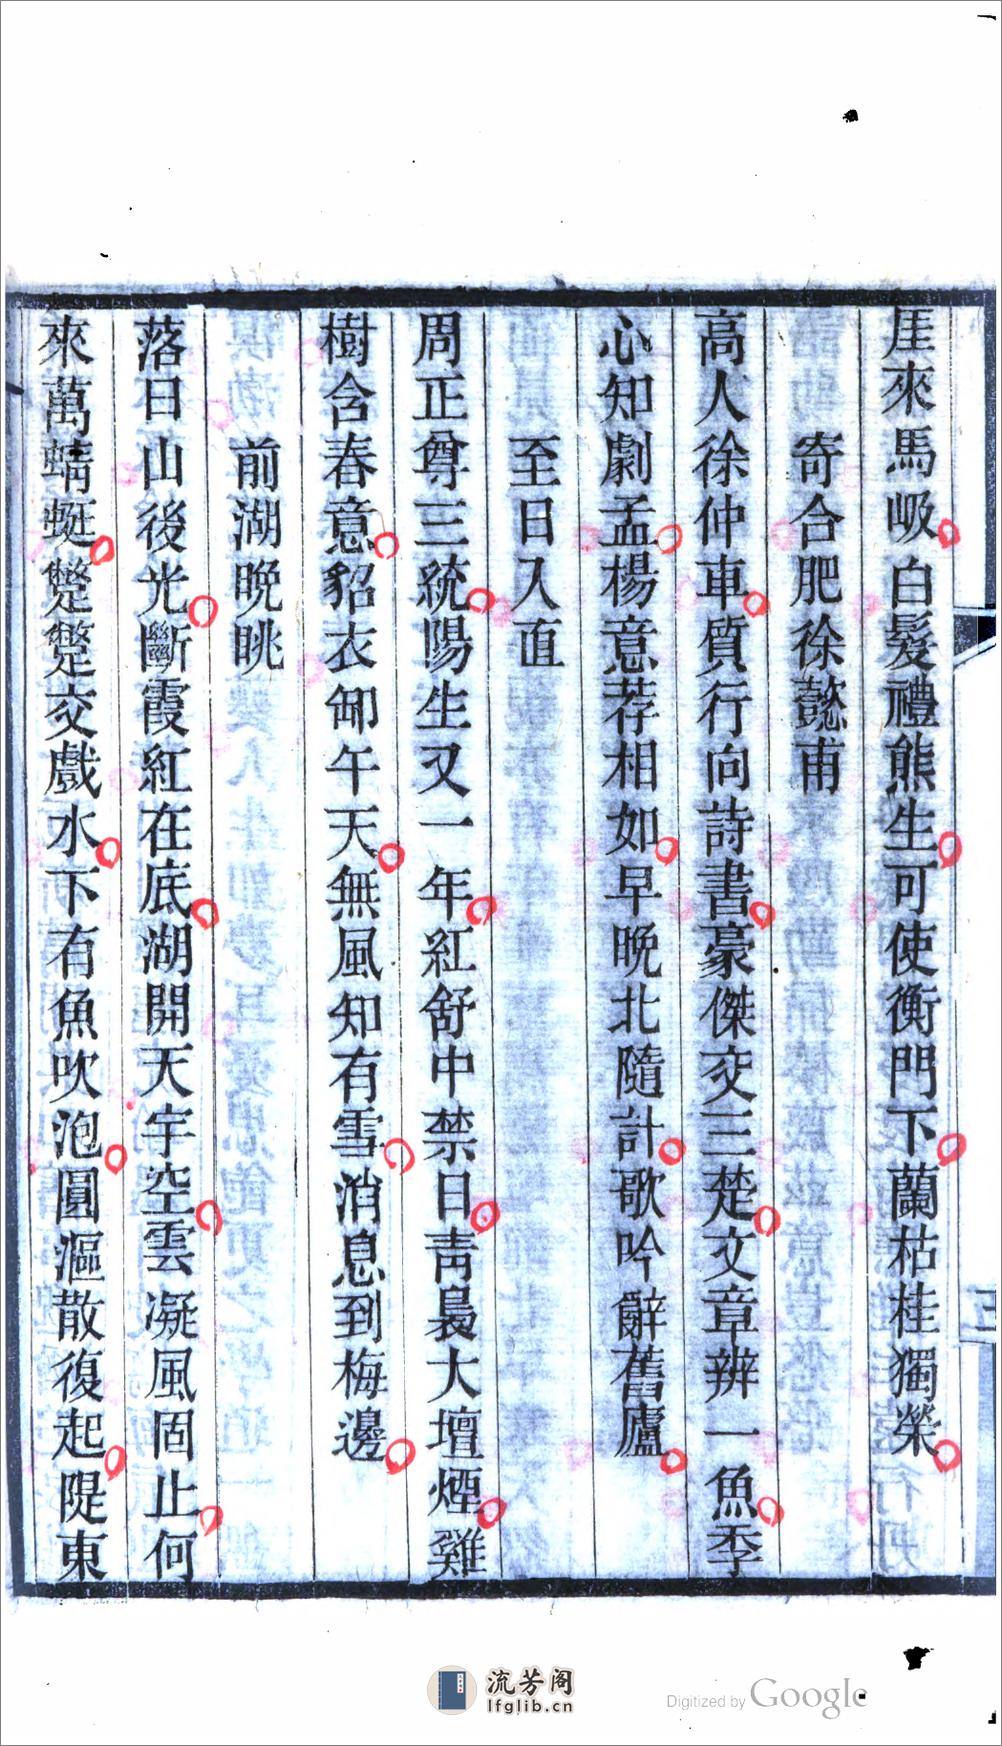 厓來馬岋白髮禮熊生可使衡門下蘭枯桂獨榮
寄合肥徐懿甫
高人徐仲車質行向詩書豪傑交三楚文章辨一魚季
心知劇孟楊意荐相如早晚北隨計歌吟辭舊廬
至日入直
周正尊三統陽生又一年紅舒中禁日靑晨大壇煙雞
樹含春意貂衣卸午天無風知有雪消息到梅邊
前湖晚眺
落日山後光斷霞紅在底湖開天宇空雲凝風固止何
來萬蜻蜓蹩蹩交戲水下有魚吹泡圓漚散復起隄東
流芳阁
lfglib.cn
Digitized by Google